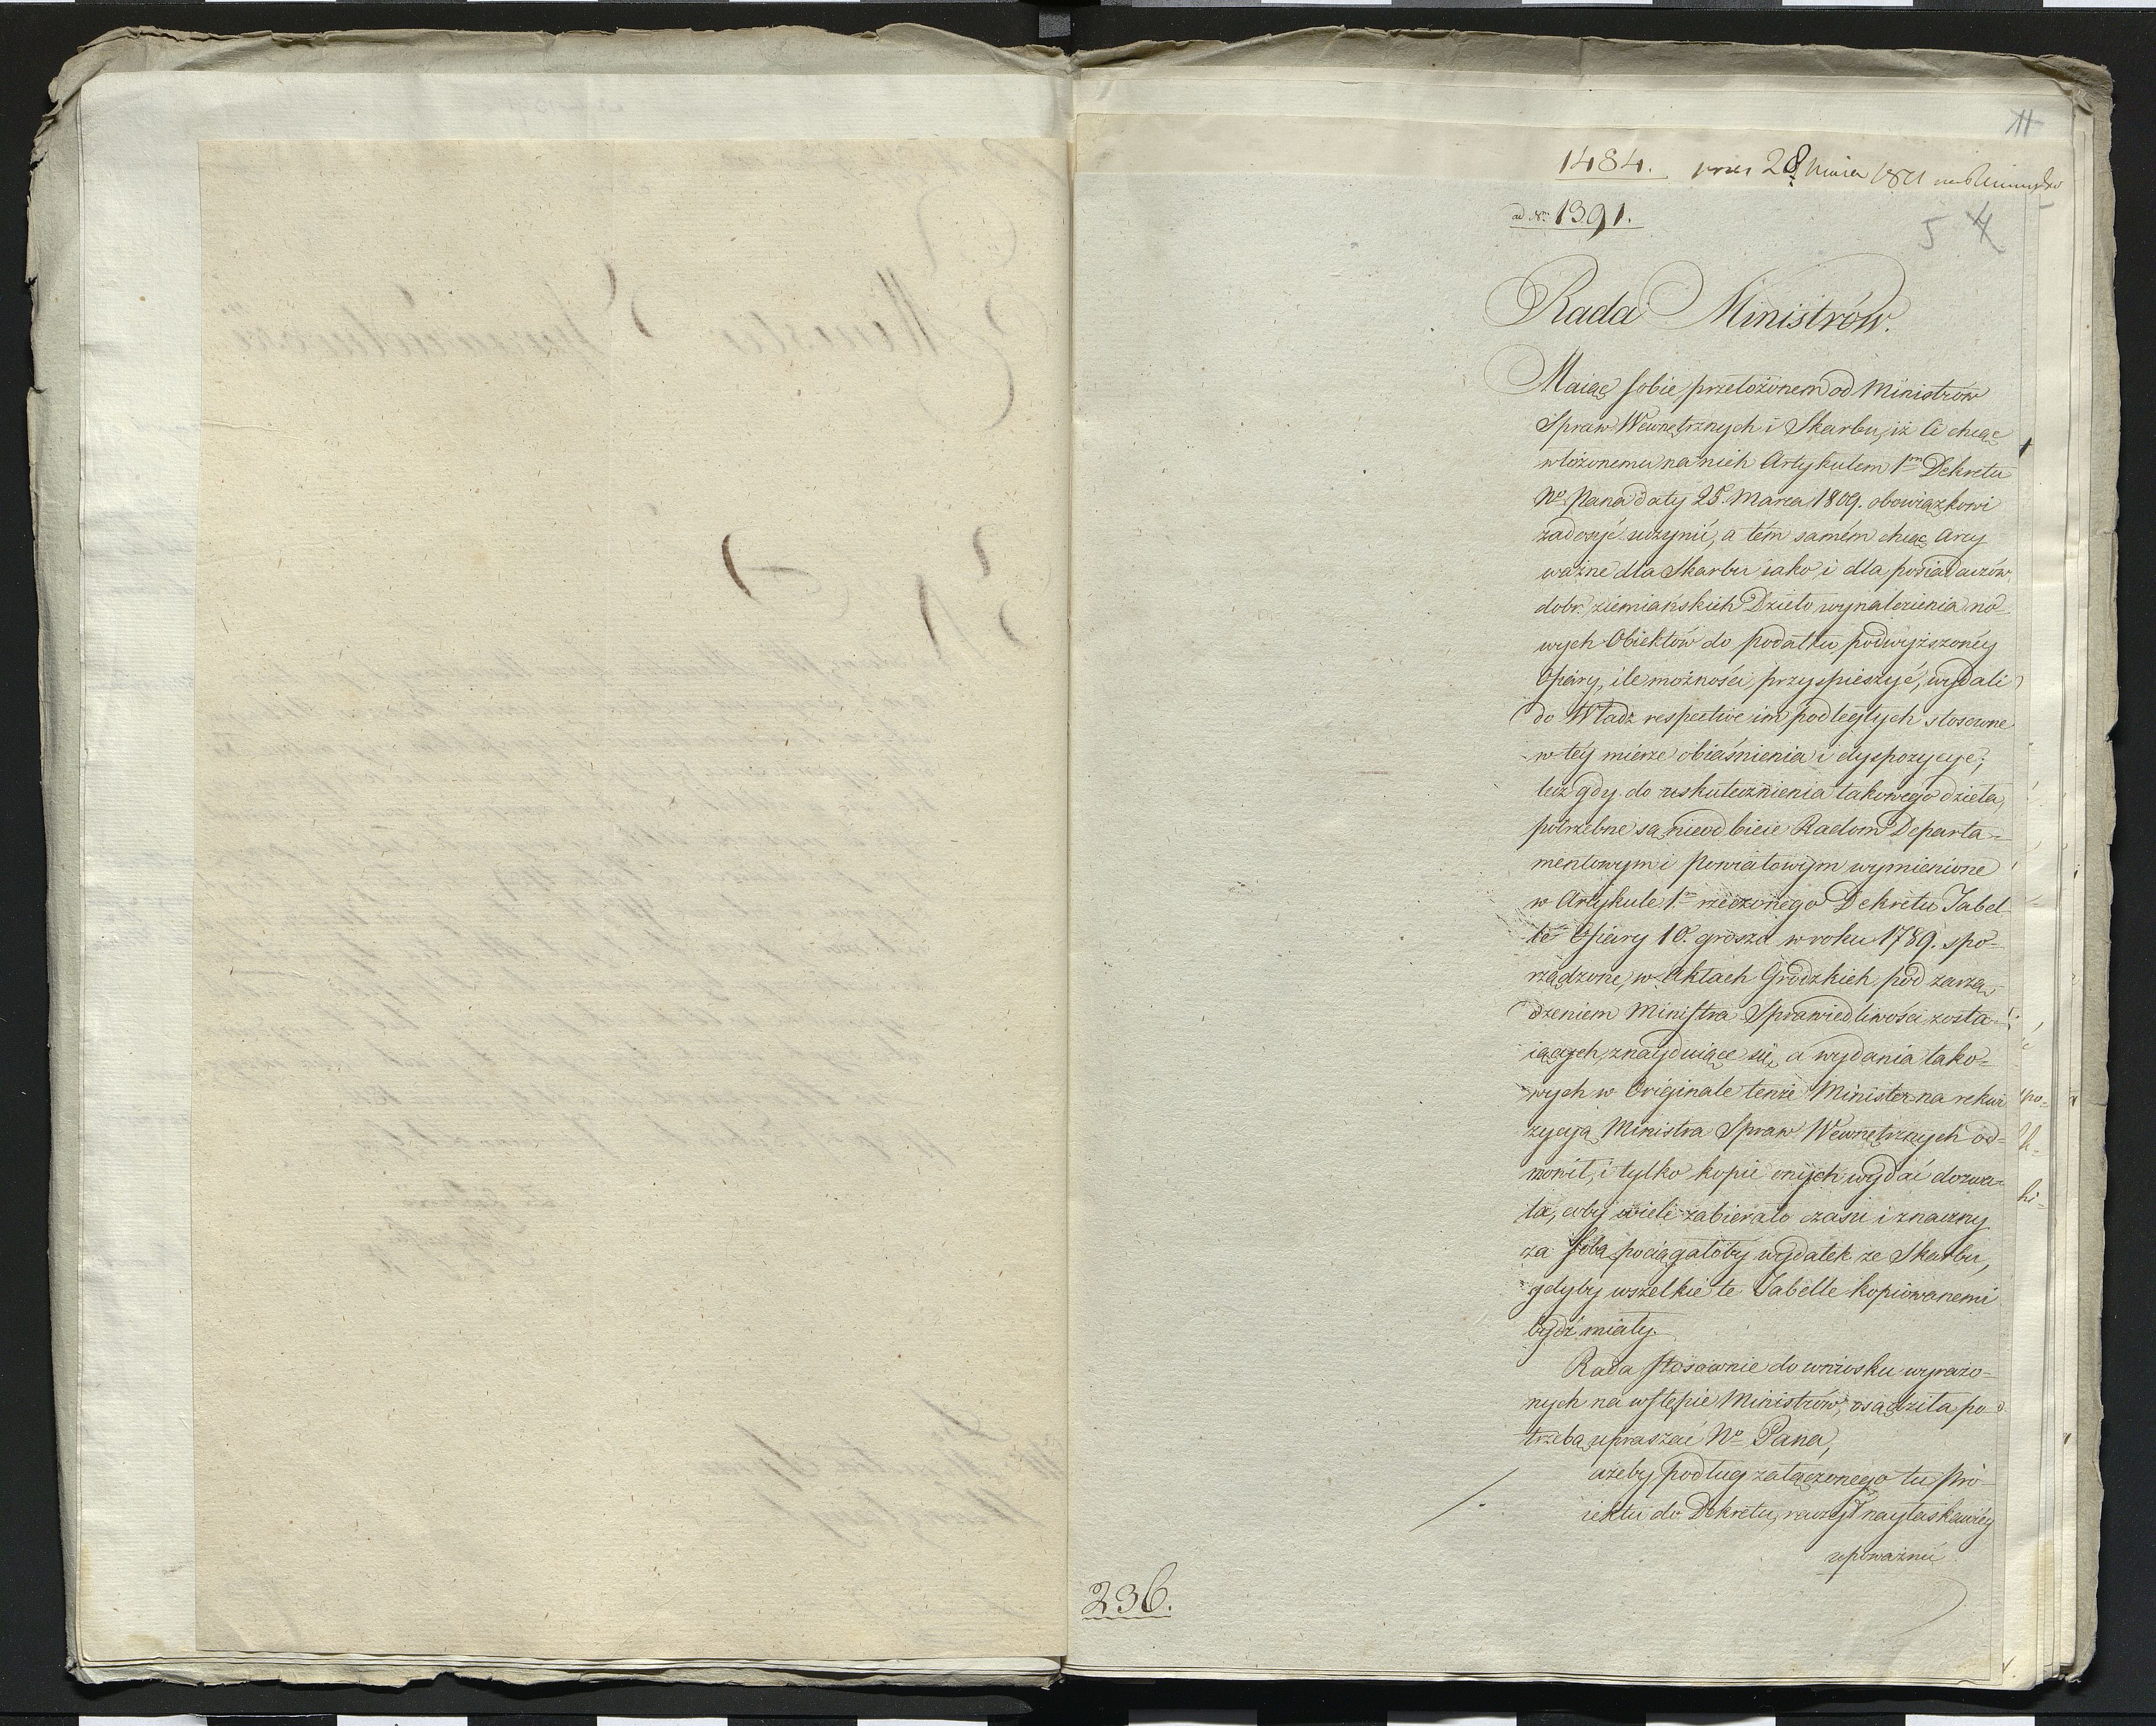 11
1484. prez 28
ad Nr 1391.
5 4
Rada Ministrów.
Maiąc sobie przełożonem od Ministrów
Spraw Wewnętrznych i Skarbu, iż Ci chcąc
włożonemu na nich Artykułem 1m Dekretu
No Pana daty 25. Marca 1809. obowiązkowi
zadosyć uczynić, a tém samém chcąc Arcy
ważne dla Skarbu iako i dla posiadaczów
dobr ziemiańskich Dzieło wynalezienia no-
wych Obiektów do podatku podwyższonéy
Ofiary, ile możności przyspieszyć, wydali
do Władz respective im podległych stosowne
w téy mierze obiaśnienia i dyspozycye;
lecz gdy do uskutecznienia takowego dzieła,
potrzebne są nieodbicie Radom Departa-
mentowym i Powiatowym wymienione
w Artykule 1m rzeczonego Dekretu Tabel-
le Ofiary 10. grosza w roku 1789. spo-
rządzone, w Aktach Grodzkich pod zarzą-
dzeniem Ministra Sprawiedliwości zosta-
iących, znayduiące się, a wydania tako-
wych w Originale tenże Minister na rekwi
zycyą Ministra Spraw Wewnętrznych od-
mówił, i tylko kopie onych wydać dozwa-
la, coby wiele zabierało czasu i znaczny
za sobą pociągałoby wydatek ze Skarbu,
gdyby wszelkie te Tabelle kopiowanemi
bydź miały.
Rada stosownie do wniosku wyrażo-
nych na wstępie Ministrów, osądziła po-
trzebą upraszać No Pana,
ażeby podług załączonego tu Pro-
iektu do Dekretu, raczył nayłaskawiéy
upoważnić
236.